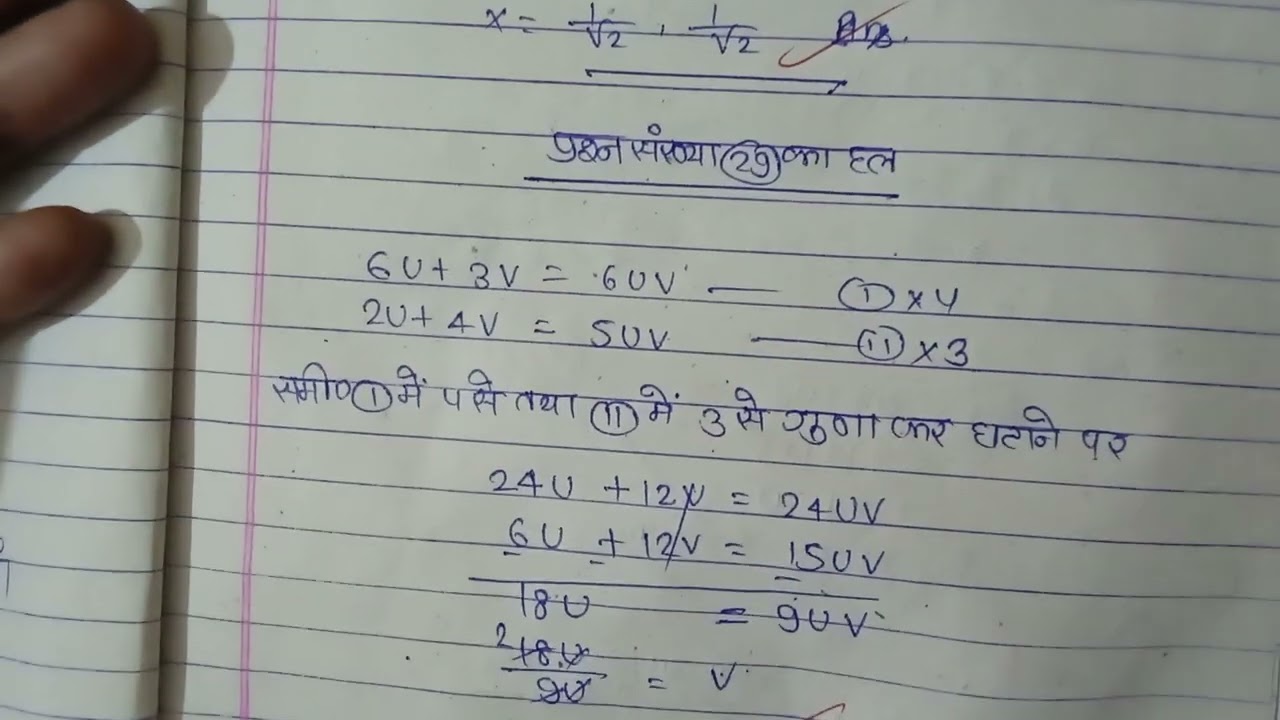 x = 1/√2 , 1/√2 Ans.
प्रश्न संख्या (29) का हल
6U + 3V = 6UV — (I) × 4
2U + 4V = 5UV — (II) × 3
समी० (I) में 4 से तथा (II) में 3 से गुणा कर घटाने पर
24U + 12V = 24UV
6U + 12V = 15UV
18U = 9UV
2 18U/9U = V